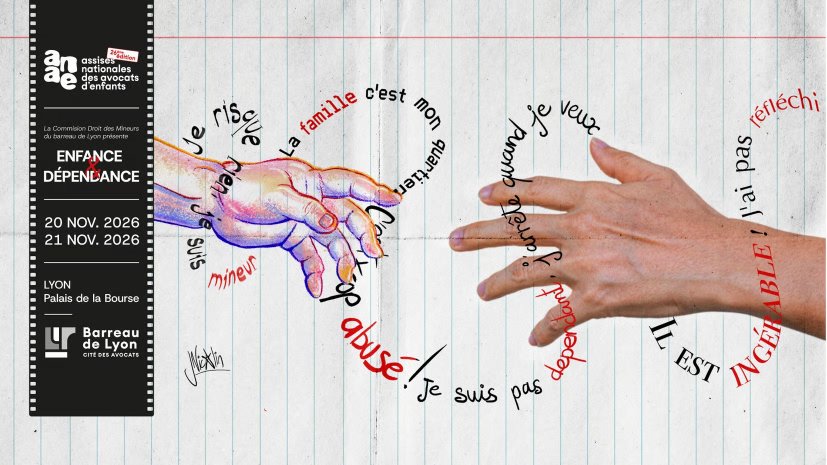 anae
26ème édition
assises
nationales
des avocats
d'enfants
La Commission Droit des Mineurs
du barreau de Lyon présente
ENFANCE
&
DÉPENDANCE
20 NOV. 2026
21 NOV. 2026
LYON
Palais de la Bourse
Barreau
de Lyon
CITÉ DES AVOCATS
je risque rien, je suis mineur
La famille c'est mon quartier
abusé !
Je suis pas dependant, j'arrête quand je veux
IL EST INGÉRABLE ! J'ai pas réfléchi